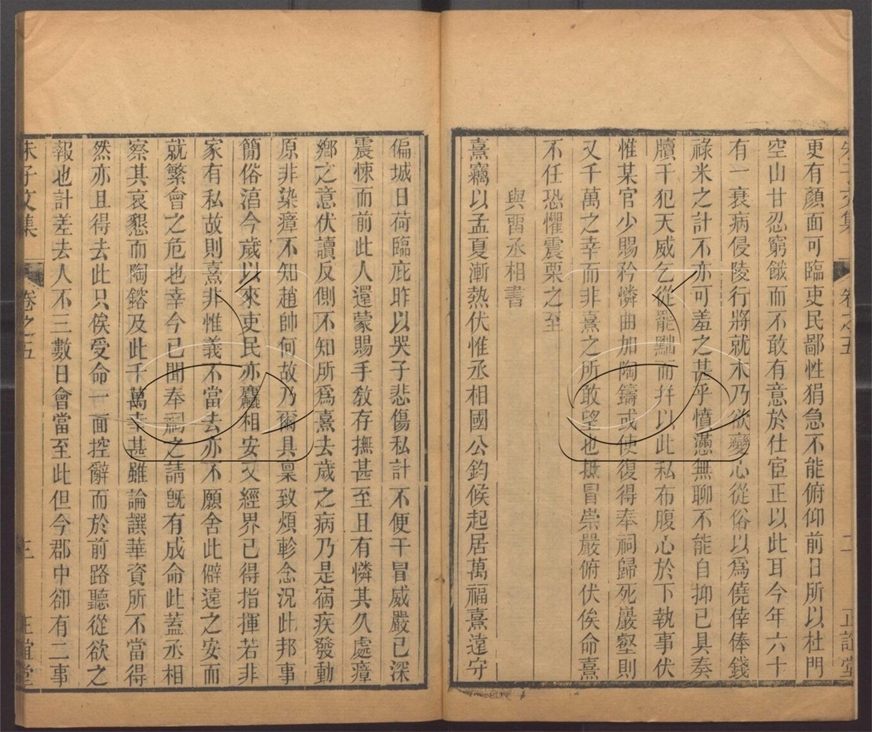 朱子文集
卷之五
二
正誼堂
更有顏面可臨吏民鄙性狷急不能俯仰前日所以杜門
空山甘忍窮餓而不敢有意於仕宦正以此耳今年六十
有一衰病侵陵行將就木乃欲變心從俗以爲僥倖俸錢
祿米之計不亦可羞之甚乎憤懣無聊不能自抑已具奏
牘干犯天威乞從罷黜而并以此私布腹心於下執事伏
惟某官少賜矜憐曲加陶鑄或使復得奉祠歸死巖壑則
又千萬之幸而非熹之所敢望也抵冒崇嚴俯伏俟命熹
不任恐懼震栗之至
與畱丞相書
熹竊以孟夏漸熱伏惟丞相國公鈞候起居萬福熹遠守
偏城日荷臨庇昨以哭子悲傷私計不便干冒威嚴已深
震悚而前此人還蒙賜手敎存撫甚至且有憐其久處瘴
鄉之意伏讀反側不知所爲熹去歲之病乃是宿疾發動
原非染瘴不知趙帥何故乃爾具稟致煩軫念況此邦事
簡俗淳今歲以來吏民亦麤相安又經界已得指揮若非
家有私故則熹非惟義不當去亦不願舍此僻遠之安而
就繁會之危也幸今已聞奉祠之請旣有成命此蓋丞相
察其哀懇而陶鎔及此千萬幸甚雖論譔華資所不當得
然亦且得去此只俟受命一面控辭而於前路聽從欲之
報也計差去人不三數日會當至此但今郡中卻有二事
朱子文集
卷之五
三
正誼堂